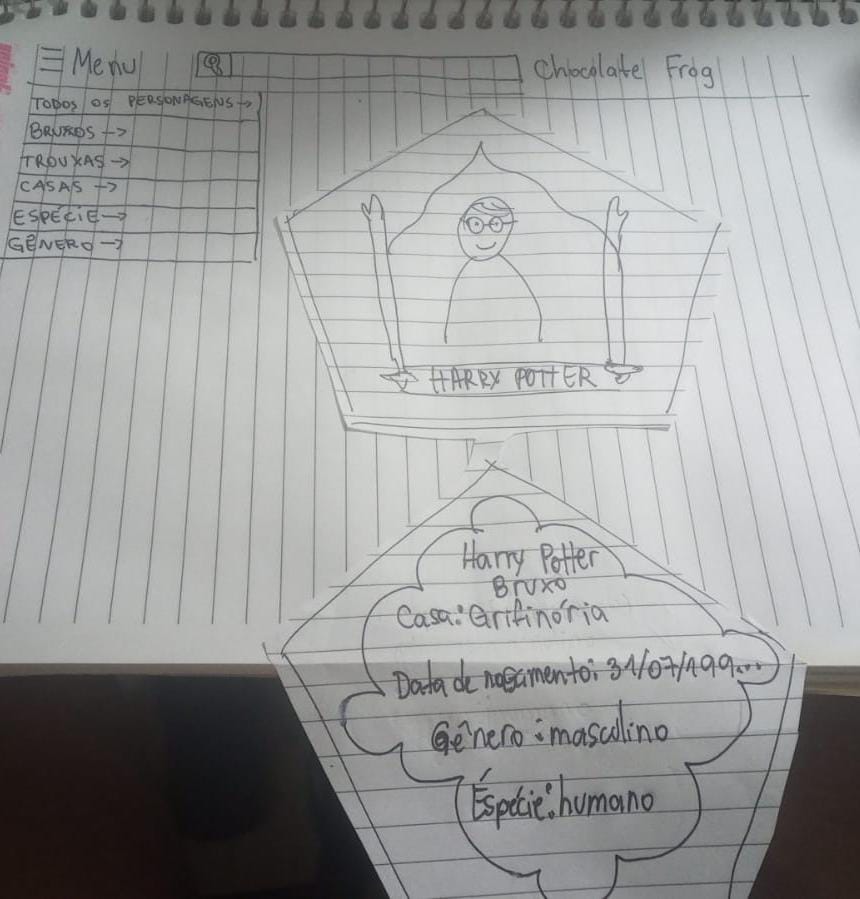 Menu
Chocolate Frog
TODOS OS PERSONAGENS →
BRUXOS →
TROUXAS →
CASAS →
ESPÉCIE →
GÊNERO →
HARRY POTTER
Harry Potter
Bruxo
Casa: Grifinória
Data de nascimento: 31/07/199...
Gênero: masculino
Éspécie: humano